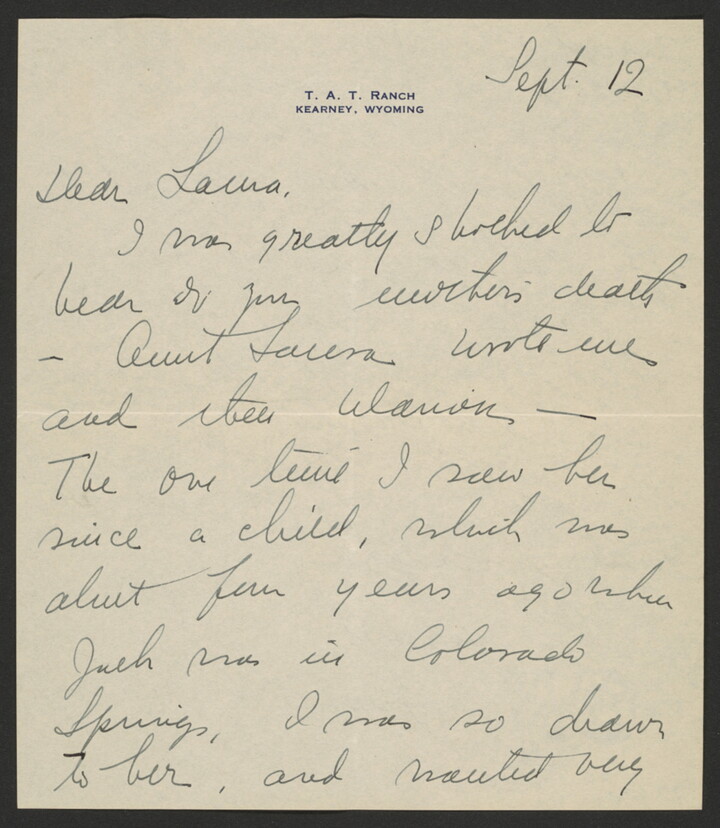 Sept. 12
T. A. T. RANCH
KEARNEY, WYOMING
Dear Laura,
I was greatly shocked to
hear of your mother's death
– Aunt Laura wrote me
and then Marion —
The one time I saw her
since a child, which was
about four years ago when
Jack was in Colorado
Springs, I was so drawn
to her, and wanted very